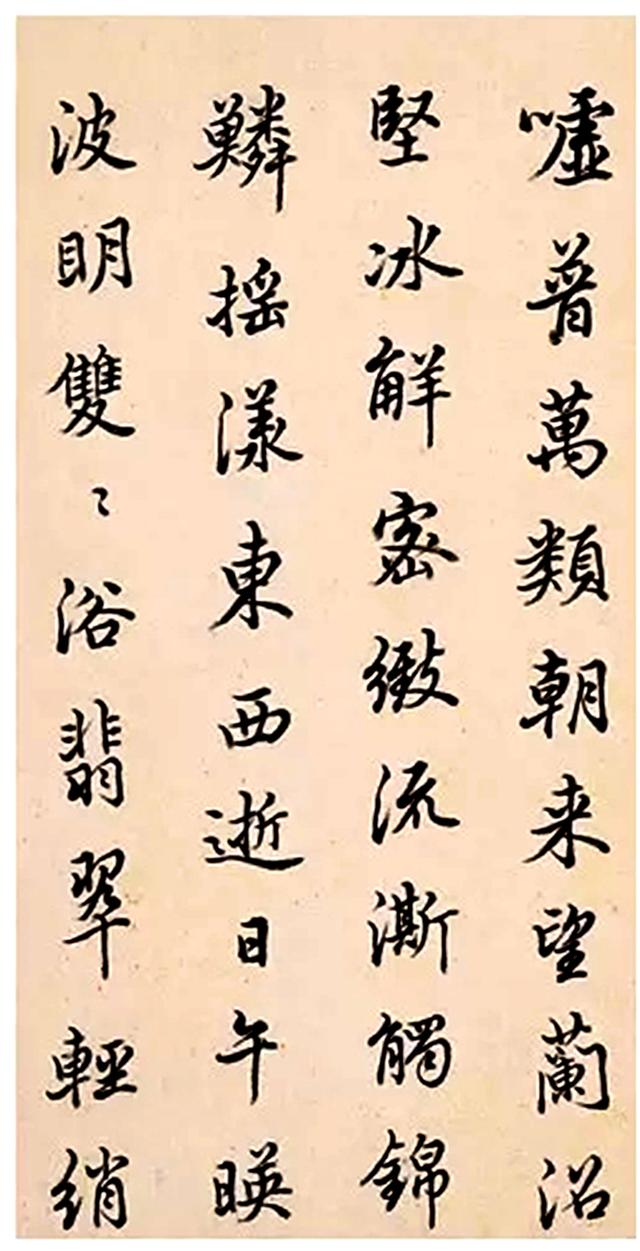 嘘普萬類朝来望蘭沼
堅冰解密緻流澌觸錦
鱗摇漾東西逝日午暎
波明雙〻浴翡翠輕綃